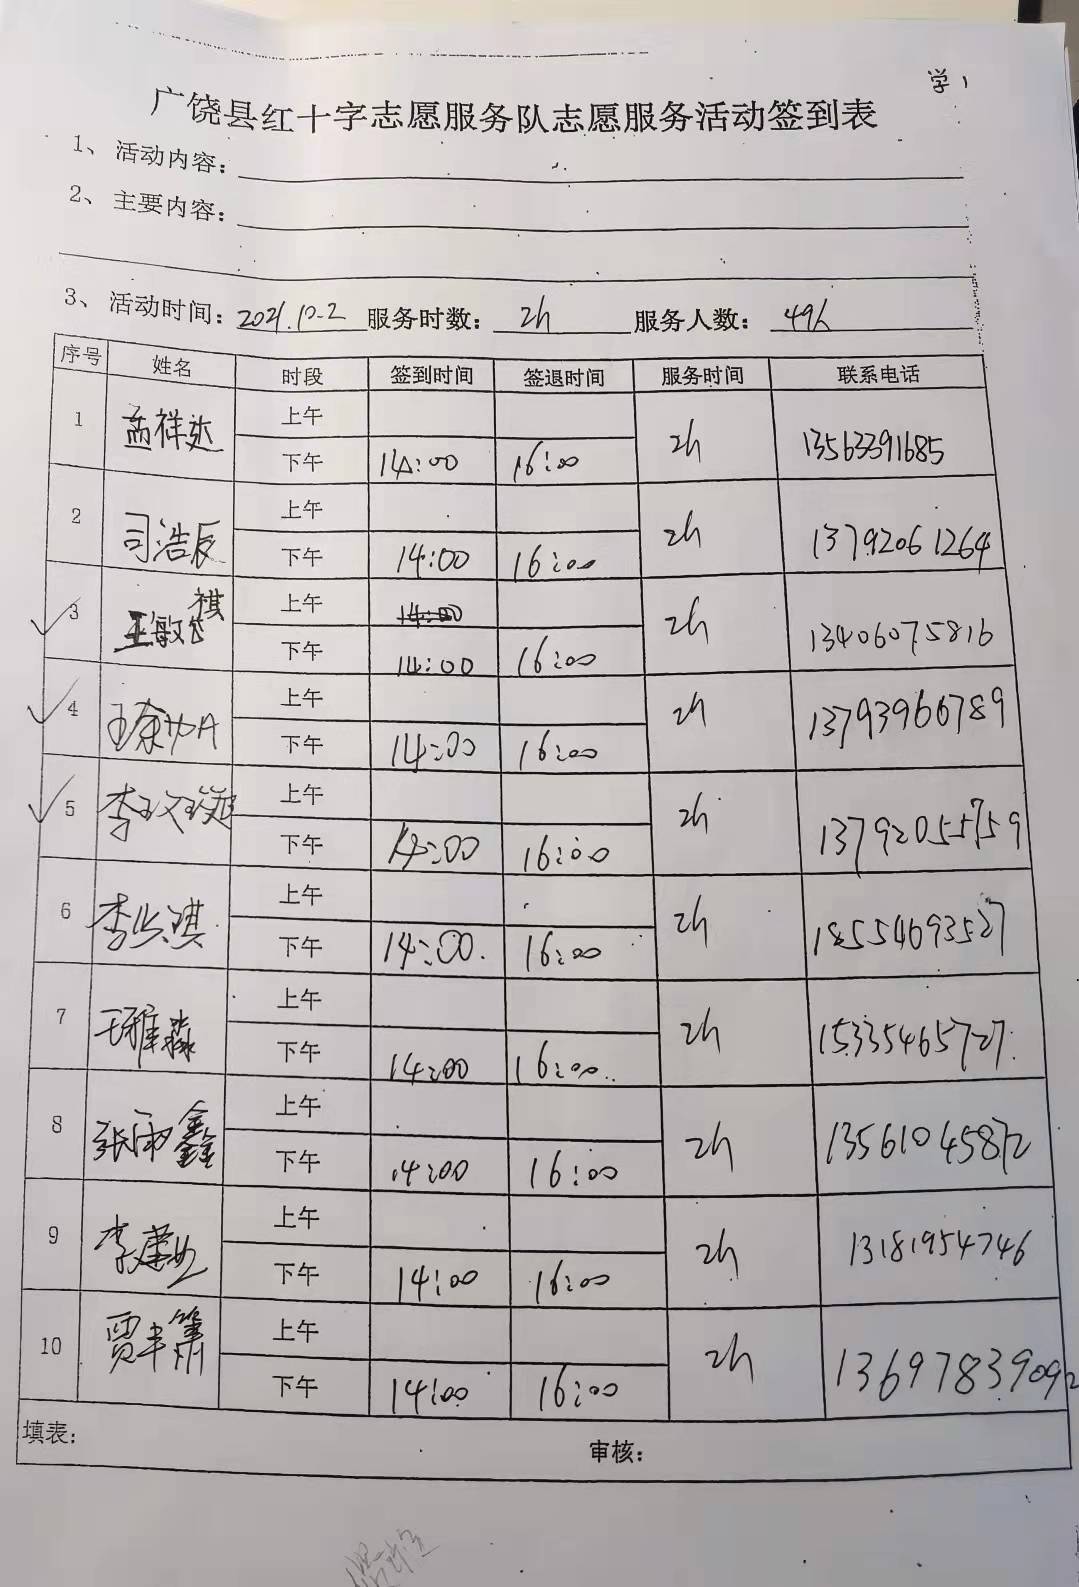 学1
广饶县红十字志愿服务队志愿服务活动签到表
1、活动内容：
2、主要内容：
3、活动时间：2021.10.2 服务时数：2h 服务人数：49人
序号 姓名 时段 签到时间 签退时间 服务时间 联系电话
1 孟祥达 上午 2h 13563391685
下午 14:00 16:00
2 司浩辰 上午 2h 13792061264
下午 14:00 16:00
3 王敏祺 上午 14:00 2h 13406075816
下午 14:00 16:00
4 上午 2h 13793966789
下午 14:00 16:00
5 李 上午 2h 13792055759
下午 14:00 16:00
6 李 琪 上午 2h 18554693527
下午 14:00. 16:00
7 王雅淼 上午 2h 15335465727
下午 14:00 16:00
8 张雨鑫 上午 2h 13561045872
下午 14:00 16:00
9 李 上午 2h 13181954746
下午 14:00 16:00
10 贾 上午 2h 13697839092
下午 14:00 16:00
填表： 审核：